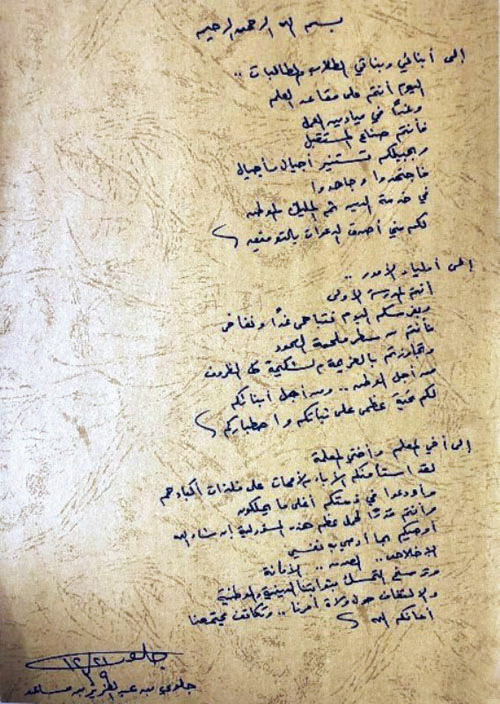 بسم الله الرحمن الرحيم
إلى أبنائي وبناتي الطلاب والطالبات ..
اليوم أنتم على مقاعد العلم
وغدًا في ميادين العمل
فأنتم صناع المستقبل
وبجيلكم تستنير أجيال وأجيال
فاجتهدوا وجاهدوا
في خدمة الدين ثم المليك والوطن
لكم مني أصدق الدعوات بالتوفيق
إلى أولياء الأمور ..
أنتم المدرسة الأولى
وبغرسكم اليوم نتباهى غدًا ونفاخر
فأنتم من سطر ملحمة الصمود
وتجاوزتم بالعزيمة والشكيمة كل الظروف
من أجل الوطن .. ومن أجل أبنائكم
لكم تحية عظمى على ثباتكم واصطباركم
إلى أخي المعلم وأختي المعلمة
لقد استأمنكم الآباء والأمهات على فلذات أكبادهم
وأودعوا في ذمتكم أغلى ما يملكون
وأنتم قدوة لحمل عظم هذه المسؤولية إن شاء الله
أوصيكم بما أوصي به نفسي
الإخلاص .. الصدق .. الأمانة
وترسيخ التمسك بثوابتنا الدينية والوطنية
والالتفاف حول ولاة أمرنا .. وتكاتف مجتمعنا
أعانكم الله
جلوي بن عبدالعزيز بن مساعد